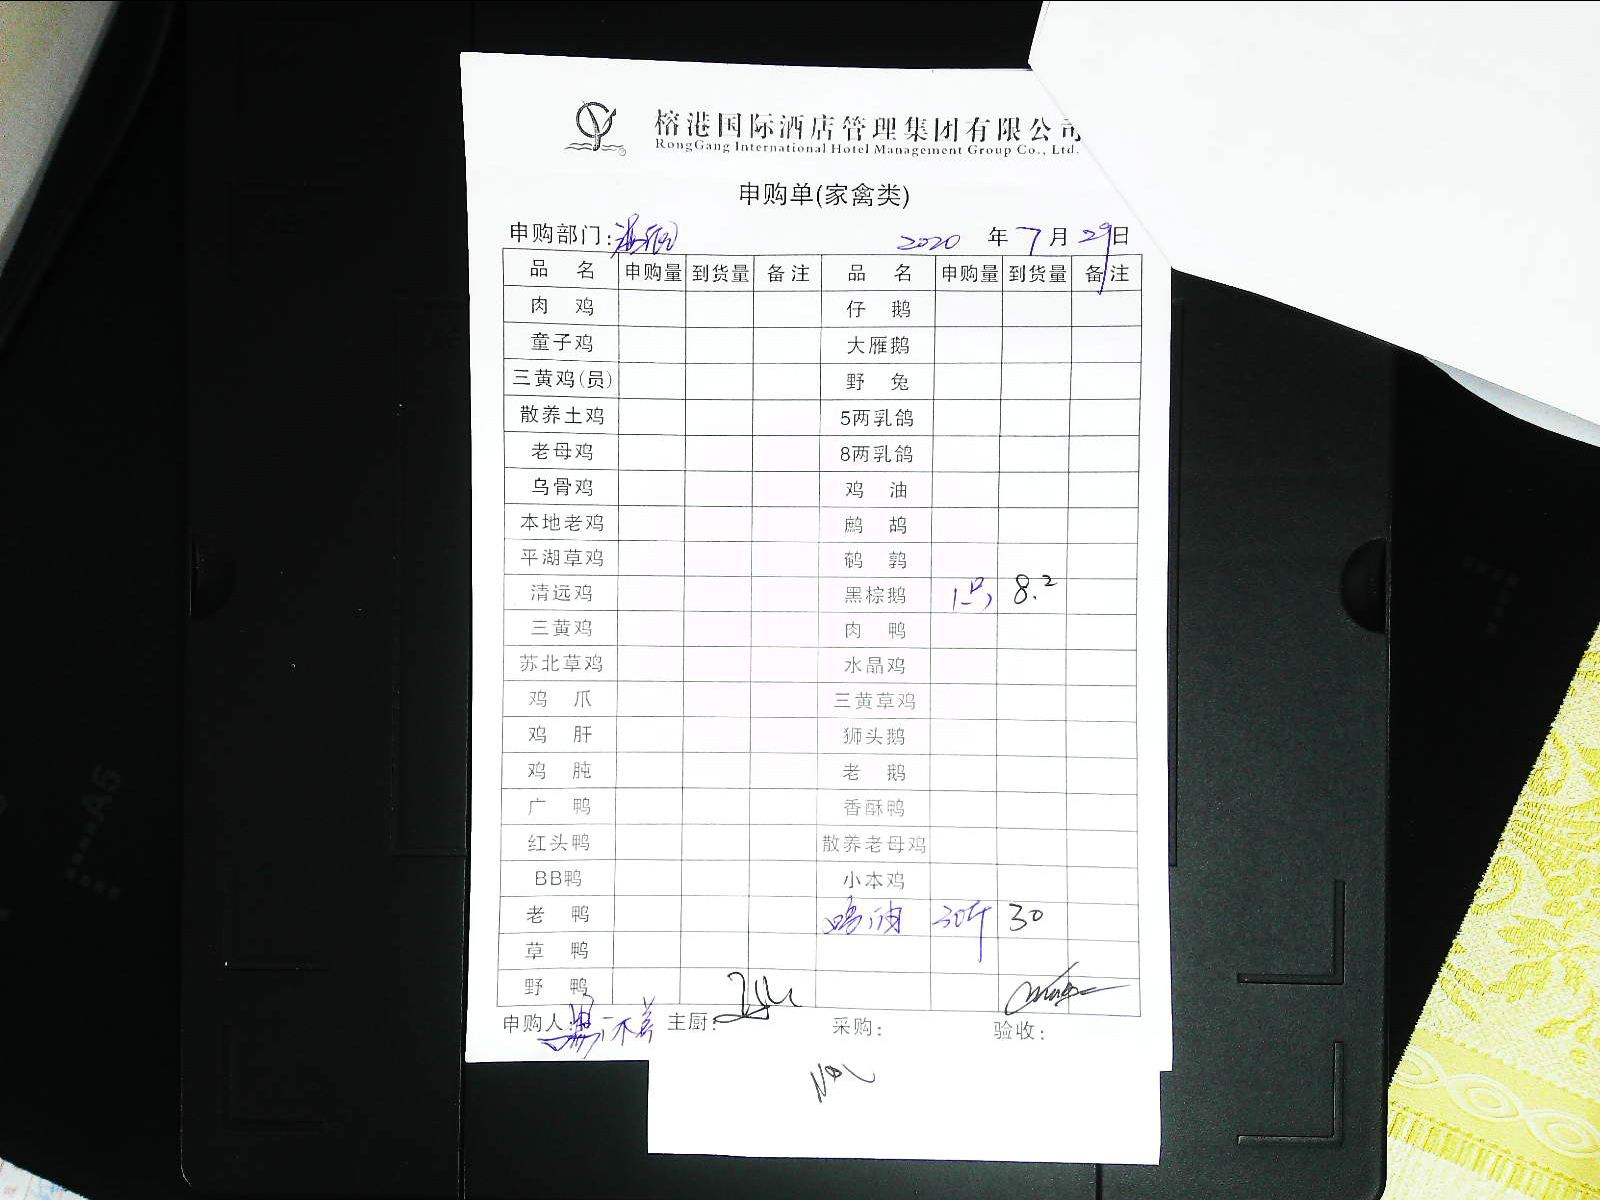 榕港国际酒店管理集团有限公司
RongGang International Hotel Management Group Co., Ltd.
申购单(家禽类)
申购部门: 2020 年 7 月 29 日
品 名 申购量 到货量 备注 品 名 申购量 到货量 备注
肉 鸡 仔 鹅
童子鸡 大雁鹅
三黄鸡(员) 野 兔
散养土鸡 5两乳鸽
老母鸡 8两乳鸽
乌骨鸡 鸡 油
本地老鸡 鹧 鸪
平湖草鸡 鹌 鹑
清远鸡 黑棕鹅 1只 8.2
三黄鸡 肉 鸭
苏北草鸡 水晶鸡
鸡 爪 三黄草鸡
鸡 肝 狮头鹅
鸡 肫 老 鹅
广 鸭 香酥鸭
红头鸭 散养老母鸡
BB鸭 小本鸡
老 鸭 鸡油 30斤 30
草 鸭
野 鸭
申购人: 主厨: 采购: 验收: